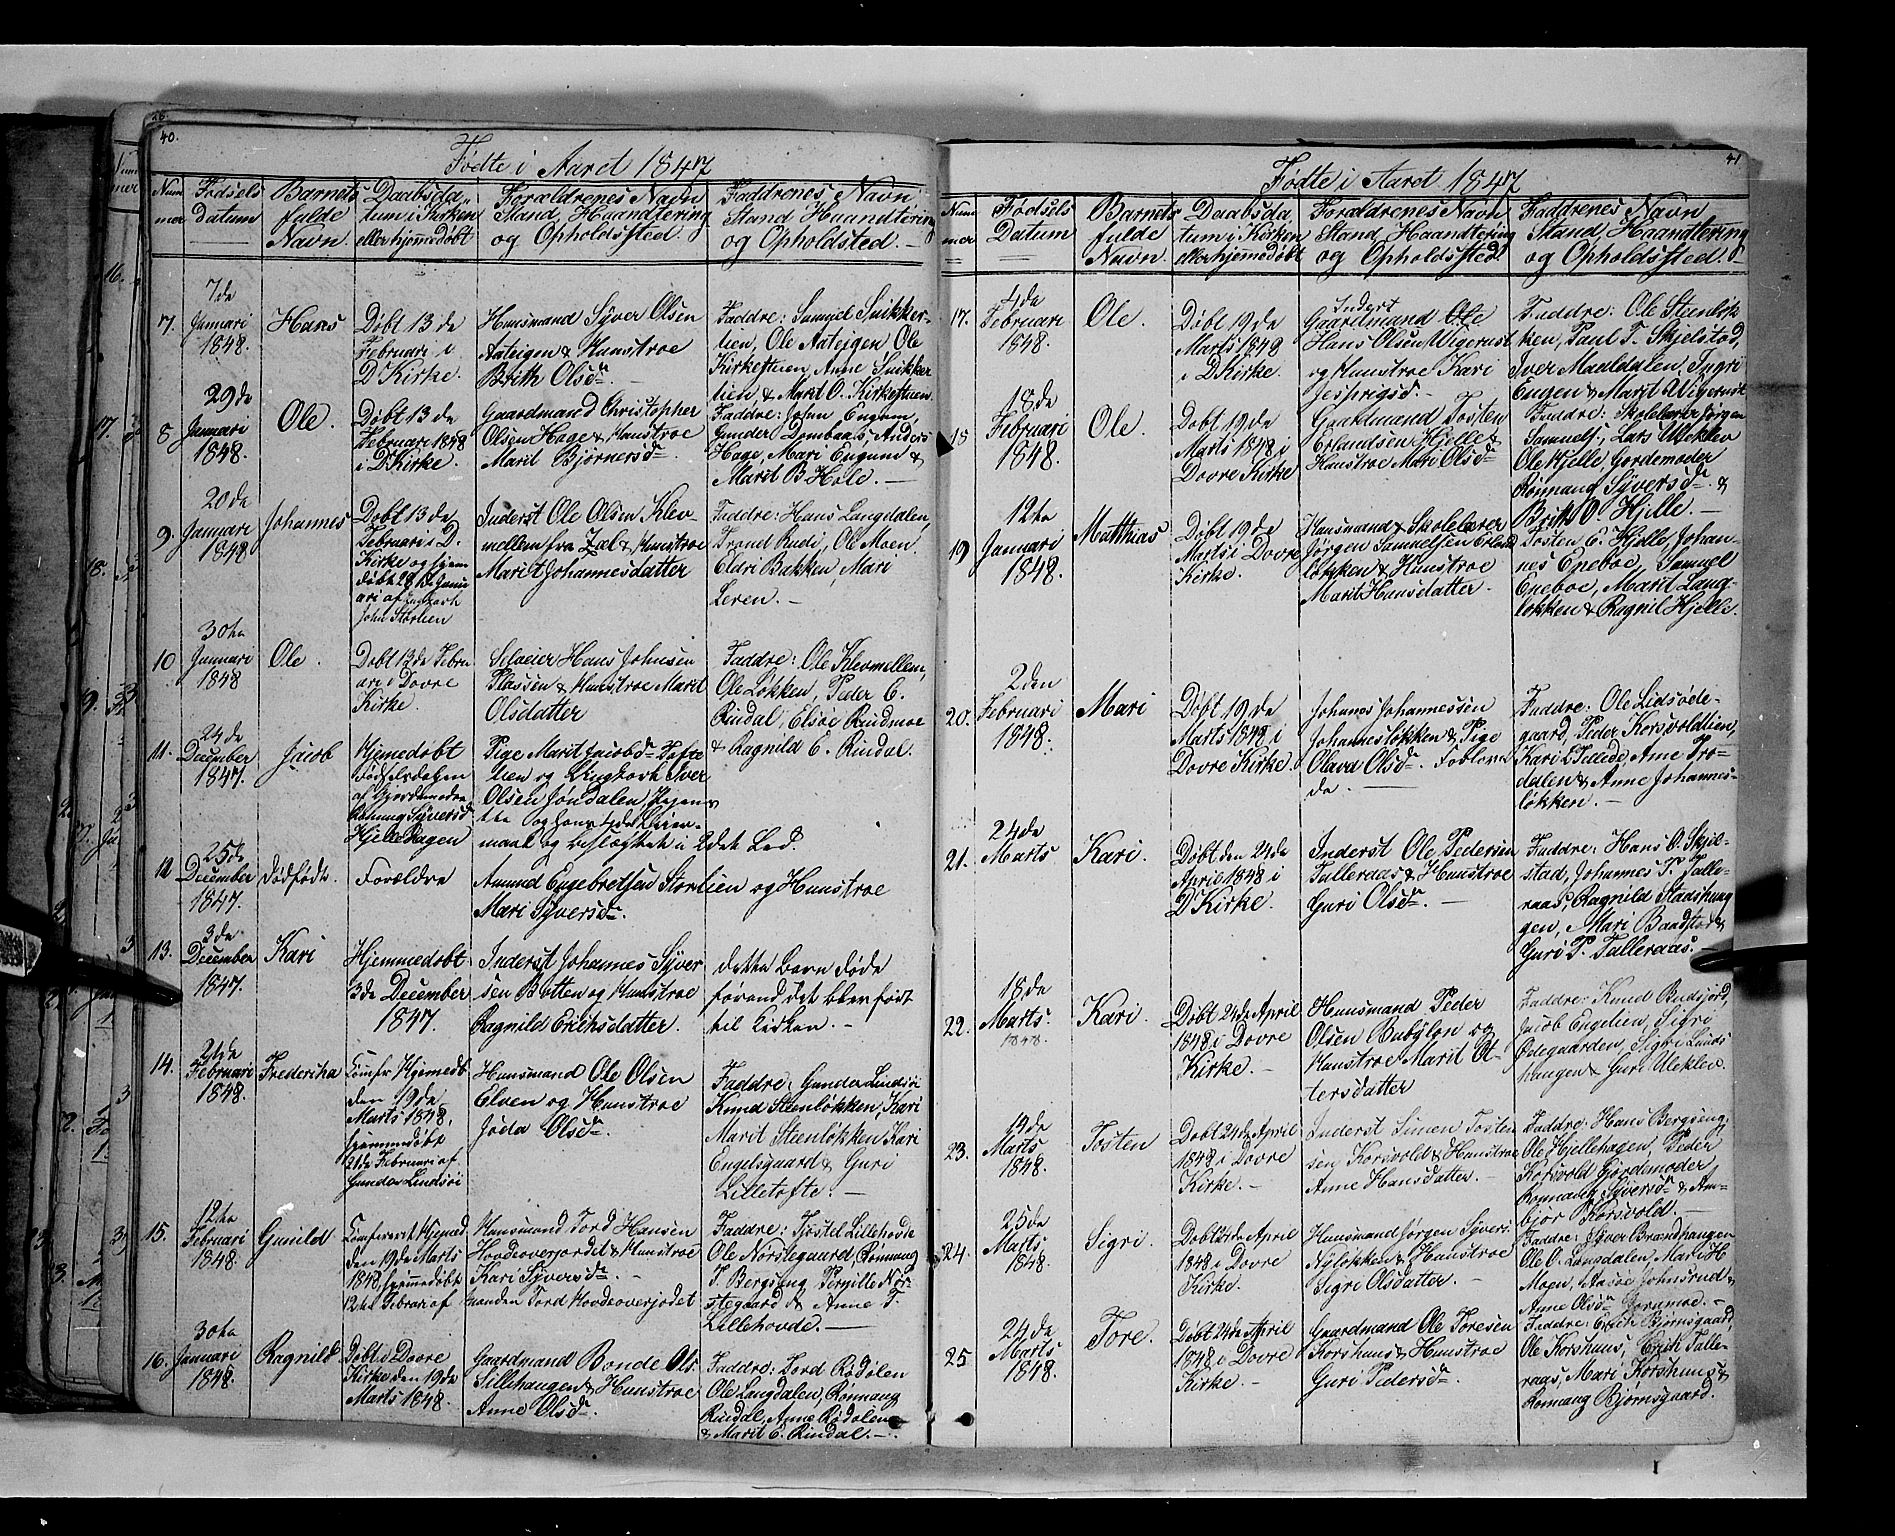 40.
Fødte i Aaret 1847
Num
mer
Fødsels
datum
Barnets
fulde
Navn.
Daabsda
tum i Kirken
eller hjemmedøbt
Forældrenes Navn
Stand, Haandtering
og Opholdssted.
Faddrenes Navn
Stand Haandtering
og Opholdsted. —
7.
7de
Januari
1848.
Hans
Døbt 13de
Februari i
D Kirke.
Huusmand Syver Olsen
Aateigen & Hustroe
Brith Olsdr.
Faddre: Samuel Snikker-
lien, Ole Aateigen Ole
Kirketuen, Anne Snikker
lien, & Marit O. Kirketuen.
8
29de
Januari
1848.
Ole.
Døbt 13de
Februari 1848
i D Kirke.
Gaardmand Christopher
Olsen Hage & Hustroe
Marit Bjørnersdr.
Faddre: John Engum,
Gunder Dombaas, Anders
Hage, Mari Engum &
Marit B Hole. —
9.
20de
Januari
1848.
Johannes
Døbt 13de
Februari i D.
Kirke og hjem
døbt 28de Janu
ari af
John Storlien
Inderst Ole Olsen Klev-
mellem fra Læl & Hustroe
Marit Johannesdatter
Faddre: Hans Langdalen,
Trond Rudi, Ole Moen.
Eldri Bakken, Mari
Leren. —
10
30te
Januari
1848
Ole.
Døbt 13de Febru
ari i Dovre
Kirke.
Selveier Hans Johnsen
Plassen & Hustroe Marit
Olsdatter
Faddre: Ole Klevmellem,
Ole Løkken, Peder E.
Rindal, Elsøe Rindmoe
& Ragnild E. Rindal.
11.
24de
December
1847.
Jacob
Hjemmedøbt
Fødselsdagen
af Gjordemoder
Rønnaug Syversdr
Hjellehagen
Pige Marit Jacobsdr Tofte
lien og Ungkarl Iver
Olsen Jøndalen,
maal og beslægtet i 2det Led.
12
25de
December
1847.
Dødfødt.
Forældre
Amund Engebretsen Storlien og Hustroe
Mari Syversdr.
13.
3de
December
1847.
Kari
Hjemmedøbt
3de December
1847.
Inderst Johannes Syver
sen Botten og Hustroe
Ragnild Erichsdatter.
dette Barn døde
førend det blev ført
til Kirken. —
14.
21de
Februari
1848.
Fredericha
Comfr Hjemedt
den 19de
Marts 1848,
hjemmedøbt
21de Februari af
Gunder Lindsøi
Huusmand Ole Olsen
Elven og Hustroe
Jøda Olsdr.
Faddre: Gunder Lindsøi
Knud Steenløkken, Kari
Marit Steenløkken Kari
Engelsgaard & Guri
Lilletofte. —
15.
12te
Februari
1848.
Gunild
Comfirmert Hjemed.
den 19de Marts
1848, hjemmedøbt
12te Februari af
Huusmand Tord Hansen
Hovdeoverjordet & Hustroe
Kari Syversdr. —
manden Tord Hovdeoverjordet
Faddre: Tjøstel Lillehovde
Ole Nørstegaard, Rønnaug
T. Bergseng, Pernille Nør
stegaard & Anne T.
Lillehovde. —
16.
30te
Januari
1848.
Ragnild
Døbt i Dovre
Kirke den 19de
Marts 1848.
Gaardmand Bonde Ols
Lillehaugen & Hustroe
Anne Olsdr.
Faddre: Tord Rødølen
Ole Langdalen, Rønnaug
Rindal, Anne Rødølen
& Marit E. Rindal. —
41
Fødte i Aaret 1847
Num
mer
Fødsels
Datum
Barnets
fulde
Navn.
Daabsda
tum i Kirken
eller hjemedøbt
Forældrenes Navn
Stand Haandtering
og Opholdssted
Faddrenes Navn
Stand, Haandtering
og Opholdssted.
17.
4de
Februari
1848.
Ole.
Døbt 19de
Marts 1848
i D Kirke.
Inderst
Gaardmand Ole
Hans Olsen Vigerust
og Hustroe Kari
Jesprigsdr. —
Faddre: Ole Steenløk
ken, Paul T. Skjelstad,
Iver Maaldalen, Ingri
Engen & Marit Vigerust
18
18de
Februari
1848.
Ole.
Døbt 19de
Marts 1848 i
Dovre Kirke
Gaardmand Tosten
Erlandsen Hjelle &
Hustroe Mari Olsdr
Faddre: Skolelærer Jørgen
Samuels., Lars Uleklev
Ole Hjelle, Gordemoder
Rønnaug Syversdr. &
Brith O. Hjelle. —
19
12te
Januari
1848.
Matthias
Døbt 19de
Marts i Dovre
Kirke.
Huusmand & Skolelærer
Jørgen Samuelsen Erlands
løkken & Hustroe
Marit Hansdatter.
Tosten E. Hjelle, Johan-
nes Eneboe, Samuel
Eneboe, Marit Lang-
løkken & Ragnil Hjelle.
20.
2den
Februari
1848.
Mari
Døbt 19de
Marts 1848 i
Dovre Kirke.
Johanes Johannesen
Johannesløkken & Pige
Olava Olsdr. Forlove
de. —
Faddre: Ole Lidsøde-
gaard, Peder Korsvoldlien,
Kari L Tillede, Ane Fro-
dalen & Anne Johannes-
løkken. —
21.
24de
Marts
Kari.
Døbt den 24de
April 1848 i
D Kirke.
Inderst Ole Pedersen
Talleraas & Hustroe
Guri Olsdr. —
Faddre: Hans O. Skjel-
stad, Johannes P. Talle-
raas, Ragnild Stadshaug
gen, Mari Baadstøe &
Guri P. Talleraas.
22.
18de
Marts.
1848.
Kari.
Døbt 24de April
1848 i Dovre
Kirke. —
Huusmand Peder
Olsen Babylon og
Hustroe Marit Ol-
tersdatter
Faddre: Knud Budsjord,
Jacob Engelien, Sigri
Ødegaarden, Sigri Lunds
haugen & Guri Uleklev.
23.
14de
Marts
1848.
Tosten
Døbt 24de April
1848 i Dovre
Kirke. —
Inderst Simen Tosten
sen Korsvold & Hustroe
Anne Hansdatter. —
Faddre: Hans Bergseng,
Ole Hjellehagen, Peder
Korsvold Gjordemoder
Rønnaug Syversdr & Am-
bjør Korsvold. —
24.
25de
Marts
1848.
Sigri.
Døbt 24de April
1848 i Dovre
Kirke.
Huusmand Jørgen Syvers
Nyløkken & Hustroe
Sigri Olsdatter. —
Faddre: Syver Brandhaugen
Ole O. Langdalen, Mari H
Moen, Aasøe Johnsrud &
Anne Olsdr Jorumoe. —
25
24de
Marts
1848.
Tore.
Døbt 24de April
1848 i Dovre
Kirke. —
Gaardmand Ole Toresen
Korshuus & Hustroe
Guri Pedersdr.
Faddre: Erich Bjørnsgaard,
Ole Korshuus, Erich Talle-
raas, Mari Korshuus &
Rønnaug Bjørnsgaard.